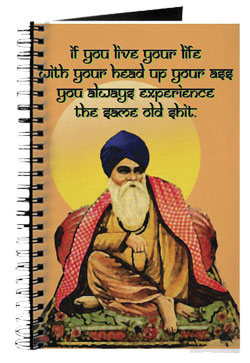 if you live your life
with your head up your ass
you always experience
the same old shit.